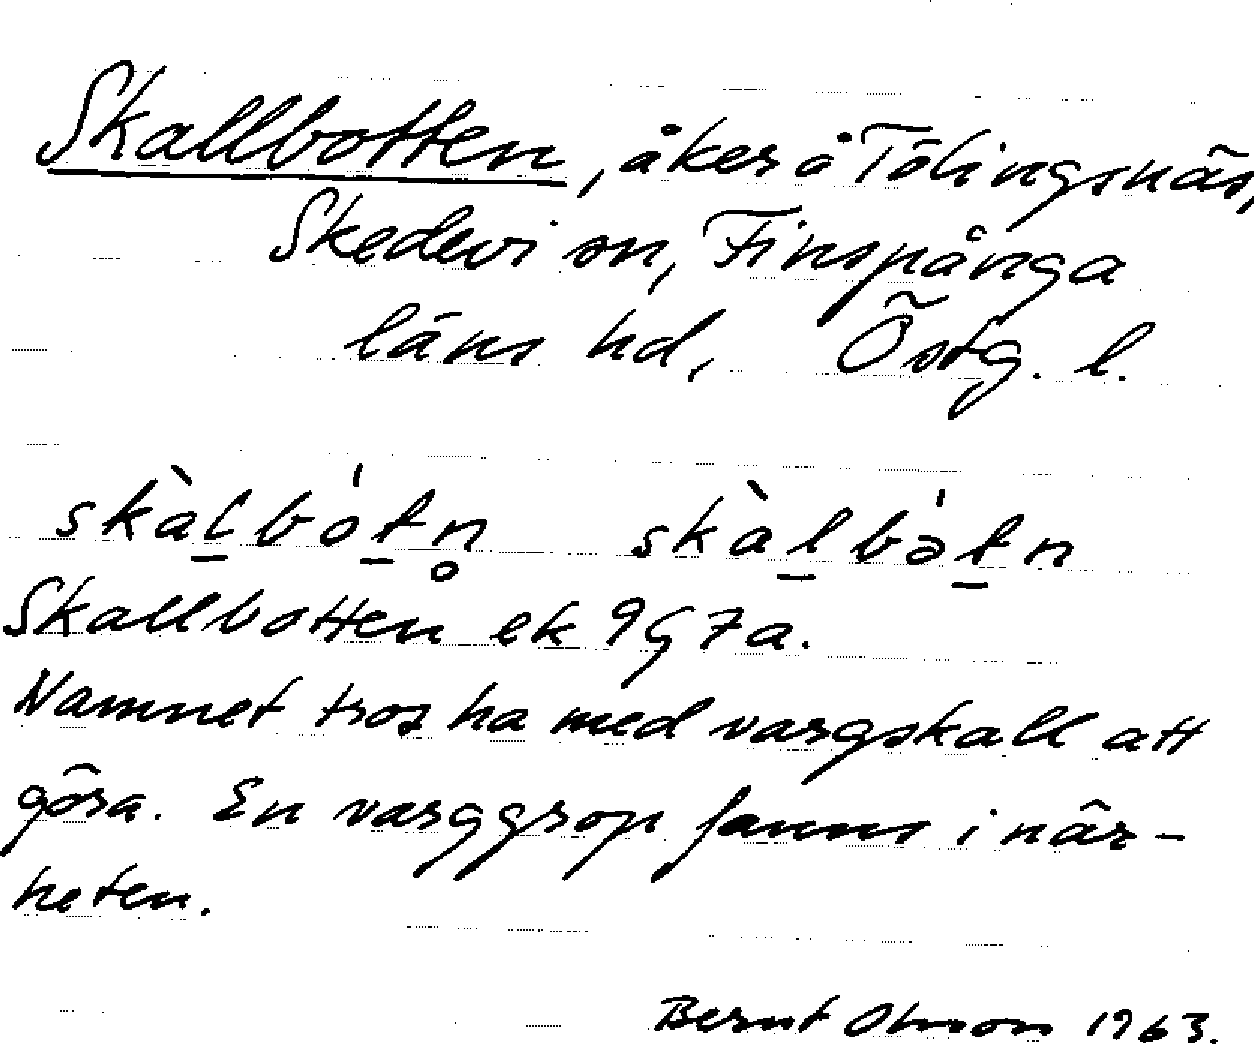 Skallbotten, åker å Tölingsnäs,
Skedevi sn, Finspånga
läns hd, Östg. l.
skàl̲bót̲n̥ skàl̲bə́t̲n
Skallbotten ek 9G7a.
Namnet tros ha med vargskall att
göra. En varggrop fanns i när-
heten.
Bernt Olsson 1963.